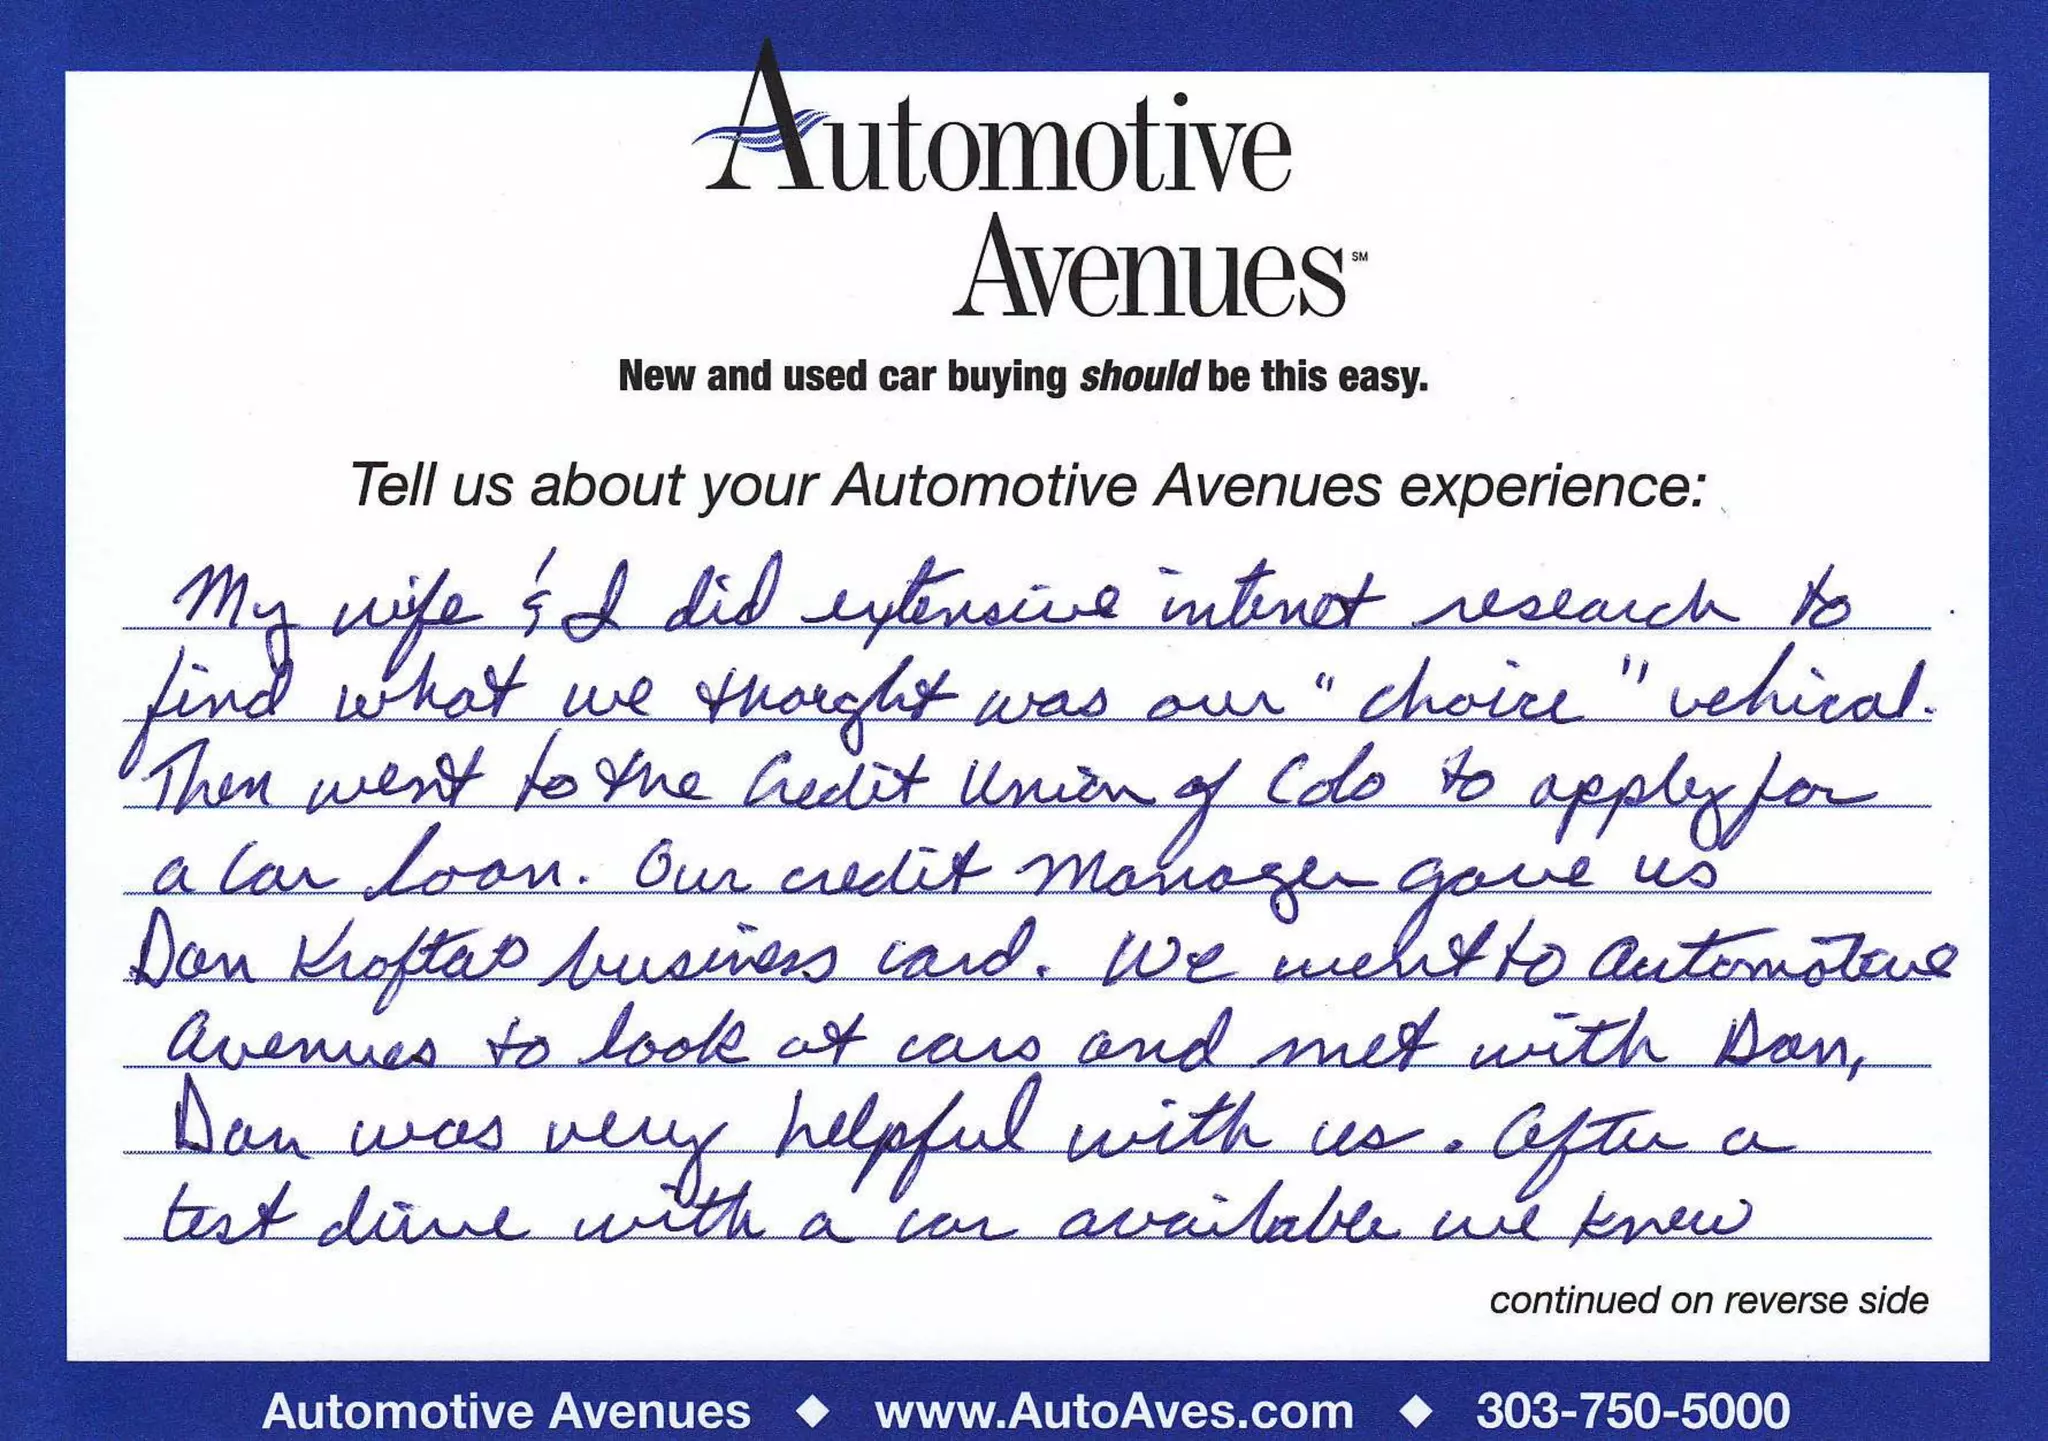 Automotive
Avenues℠
New and used car buying should be this easy.
Tell us about your Automotive Avenues experience:
My wife & I did extensive internet research to
find what we thought was our "choice" vehical.
Then went to the Credit Union of Colo to apply for
a car loan. Our credit Manager gave us
Dan Krofta's business card. We went to Automotive
Avenues to look at cars and met with Dan,
Dan was very helpful with us. After a
test drive with a car available we knew
continued on reverse side
Automotive Avenues ◆ www.AutoAves.com ◆ 303-750-5000